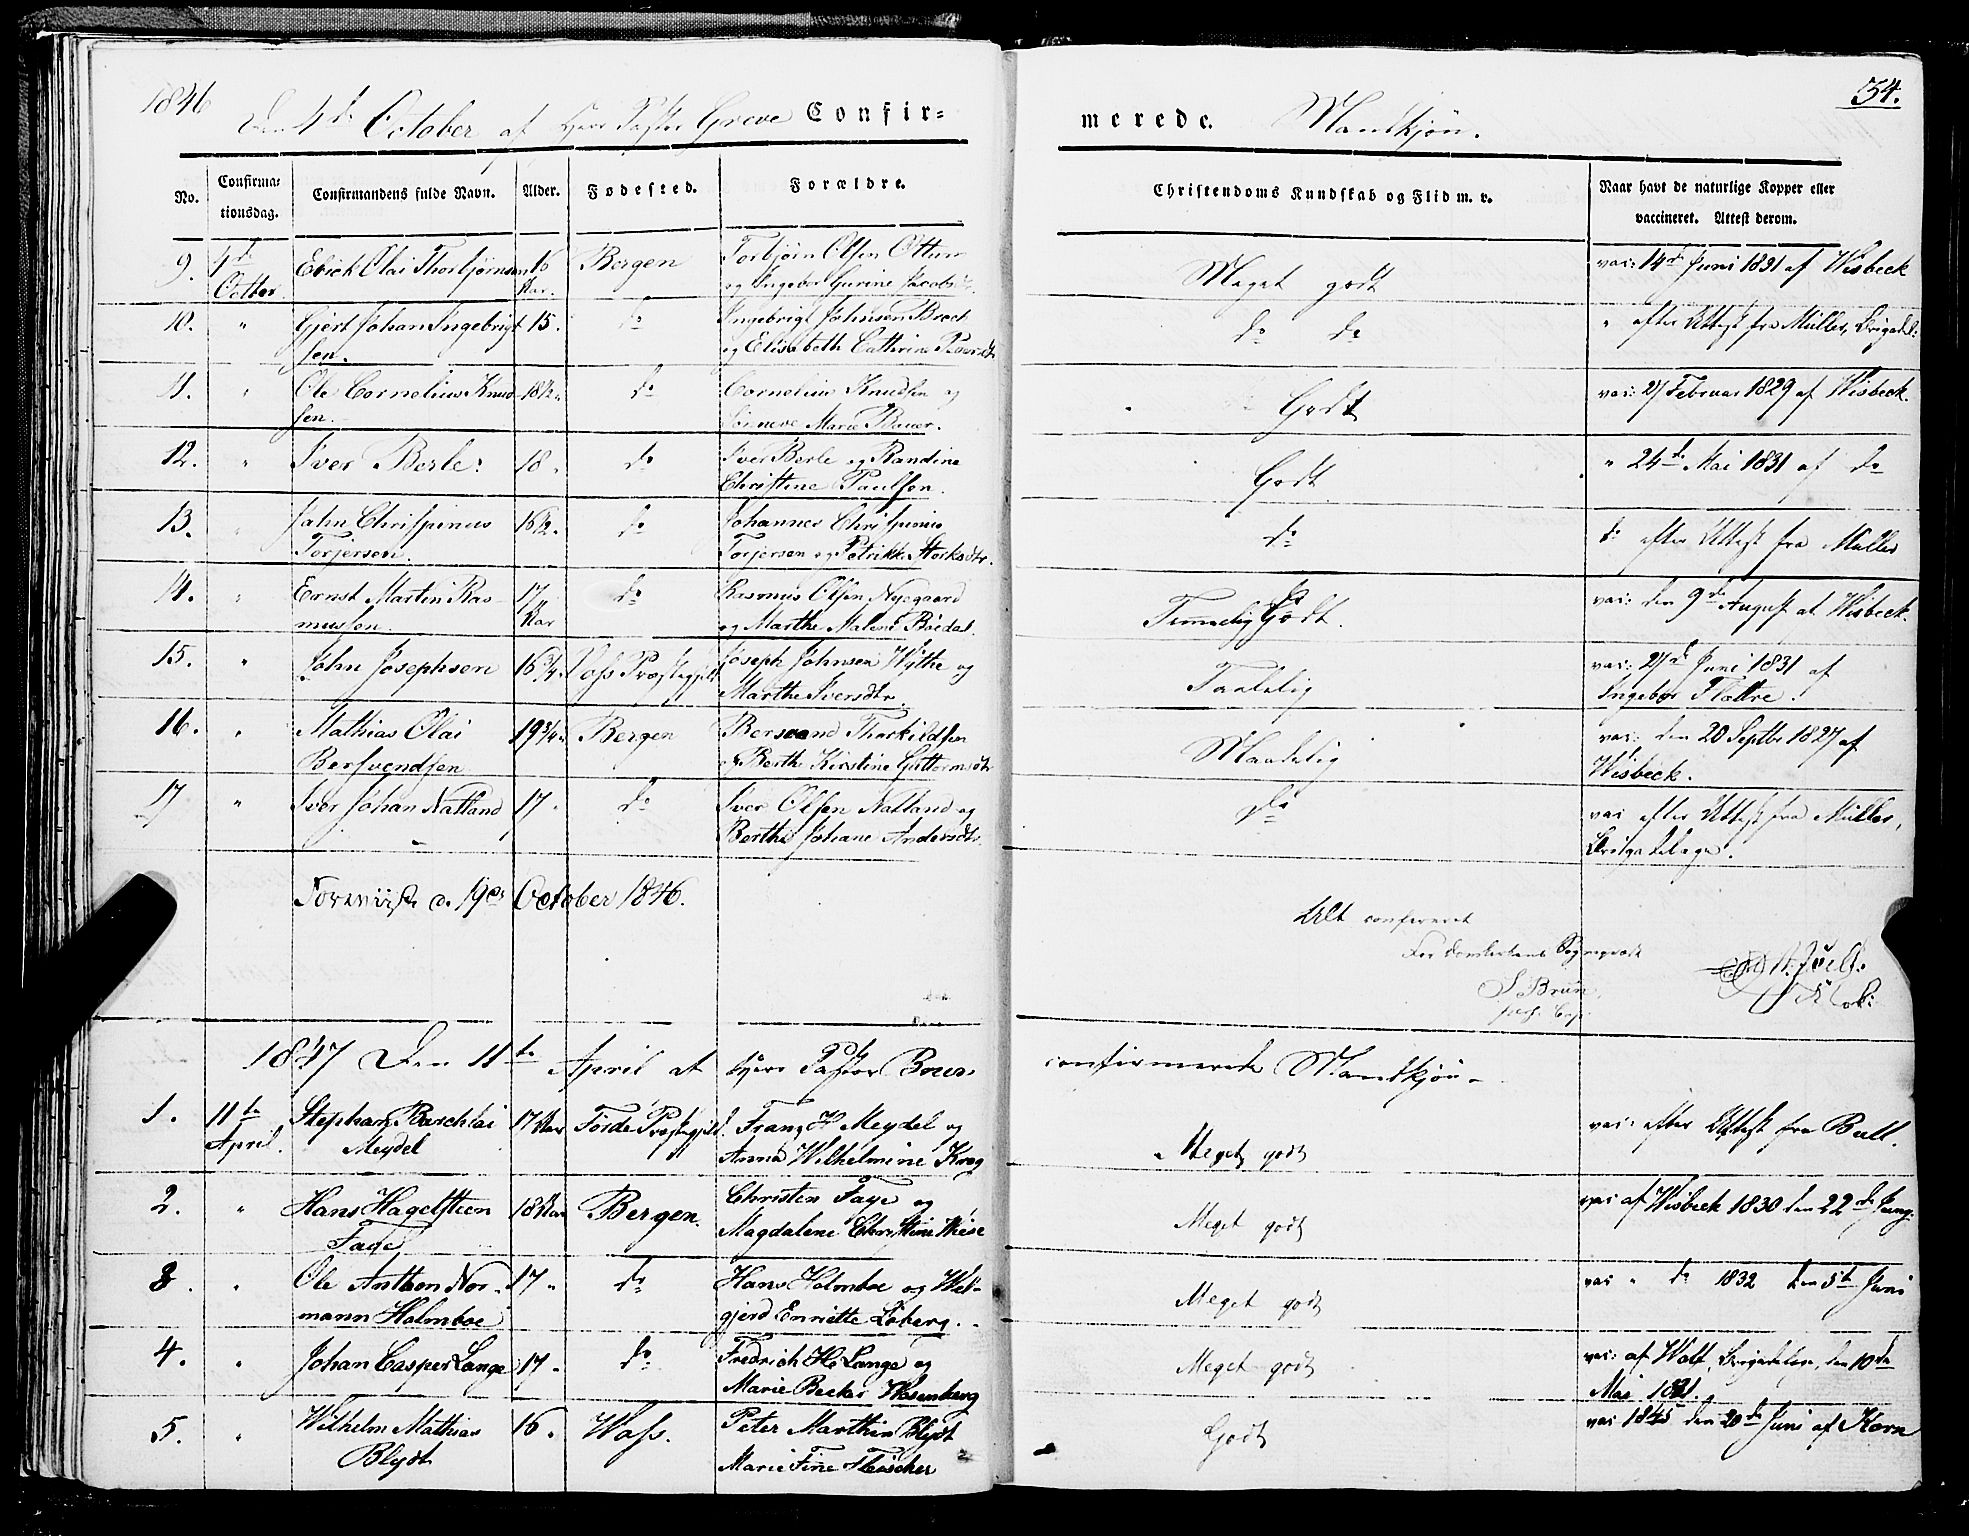 1846 Den 4de October af Herr Pastor Greve Confir=
merede. Mandkjøn.
34.
No.
Confirma=
tionsdag.
Confirmandens fulde Navn.
Alder.
Fødested.
Forældre.
Christendoms Kundskab og Flid m. v.
Naar havt de naturlige Kopper eller
vaccineret. Attest derom.
9. 4de Erick Olai Thorbjørnsen 16 Bergen Torbjørn Olsen Meget godt vac: 14de Juni 1831 af Wisbeck
Octbr. Aar. og Ingebor Gurine Jacobsdtr.
10. " Gjert Johan Ingebrigt 15. do Ingebrigt Johnsen Brech do do " efter Attest fra Müller,
sen. og Elisabeth Cathrine
11. " Ole Cornelius Knud 18½ do Cornelius Knudsen og Godt vac: 27 Februar 1829 af Wisbeck.
sen. Sønneve Marie Bauer.
12. " Iver Berle 18 do Iver Berle og Randine Godt " 24de Mai 1831 af do
Christine Paulsen.
13. " Jahn Chrispinus 16½ do Johannes Chrispinus do do efter Attest fra Müller
Torjersen. Torjersen og Petrikke
14. " Ernst Martin Ras- 17 do Rasmus Olsen Nyegaard Temmelig Godt. vac: den 9de August af Wisbeck.
mussen. Aar og Marthe Malene
15. " John Josephsen 16¾ Voss Præstegjeld Joseph Johnsen Wythe og Taalelig vac: 27de Juni 1831 af
Marthe Iversdtr. Ingebor Flattre.
16. " Mathias Olai 19¾ Bergen Thorkildsen Maadelig vac: den 20 Septbr 1827 af
Bersvendsen og Berthe Kirstine Guttormsdtr Wisbeck.
17 " Iver Johan Natland 17. do Iver Olsen Natland og do vac efter Attest fra Müller,
Berthe Johane Andersdtr. Brigadelæge.
Foreviist d. 19de October 1846.
Alt confereret
For Domkirkens Sogneprest
Brun
1847 Den 11te April af Herr Pastor confirmerede Mandkjøn
1. 11te Stephan Barchlai 17 Aar Førde Præstegjeld. Franz H Meydel og Meget godt vac: efter Attest fra Bull.
April. Meydel Anna Wilhelmine Krog
2. " Hans Hagelsteen 18 Aar Bergen. Christen Faye og Meget godt vac af Wisbeck 1830 den 22de Juny.
Faye Magdalene Christine Wiese
3. " Ole Anthon Nor- 17 " do Hans Holmboe og Wel- Meget godt vac " do 1832 den 5te Juni
mann Holmboe gjerd Enriette Løberg.
4. " Johan Casper Lange 17 " do Fredrich H. Lange og Meget godt vac: af Wolf, Brigadelæge, den 10de
Marie Becker Wesenberg Mai 1831.
5. " Wilhelm Mathias 16. Voss. Peter Marthin Blydt Godt vac 1845 den 20de Juni af Korn
Blydt Marie Fine Fleischer